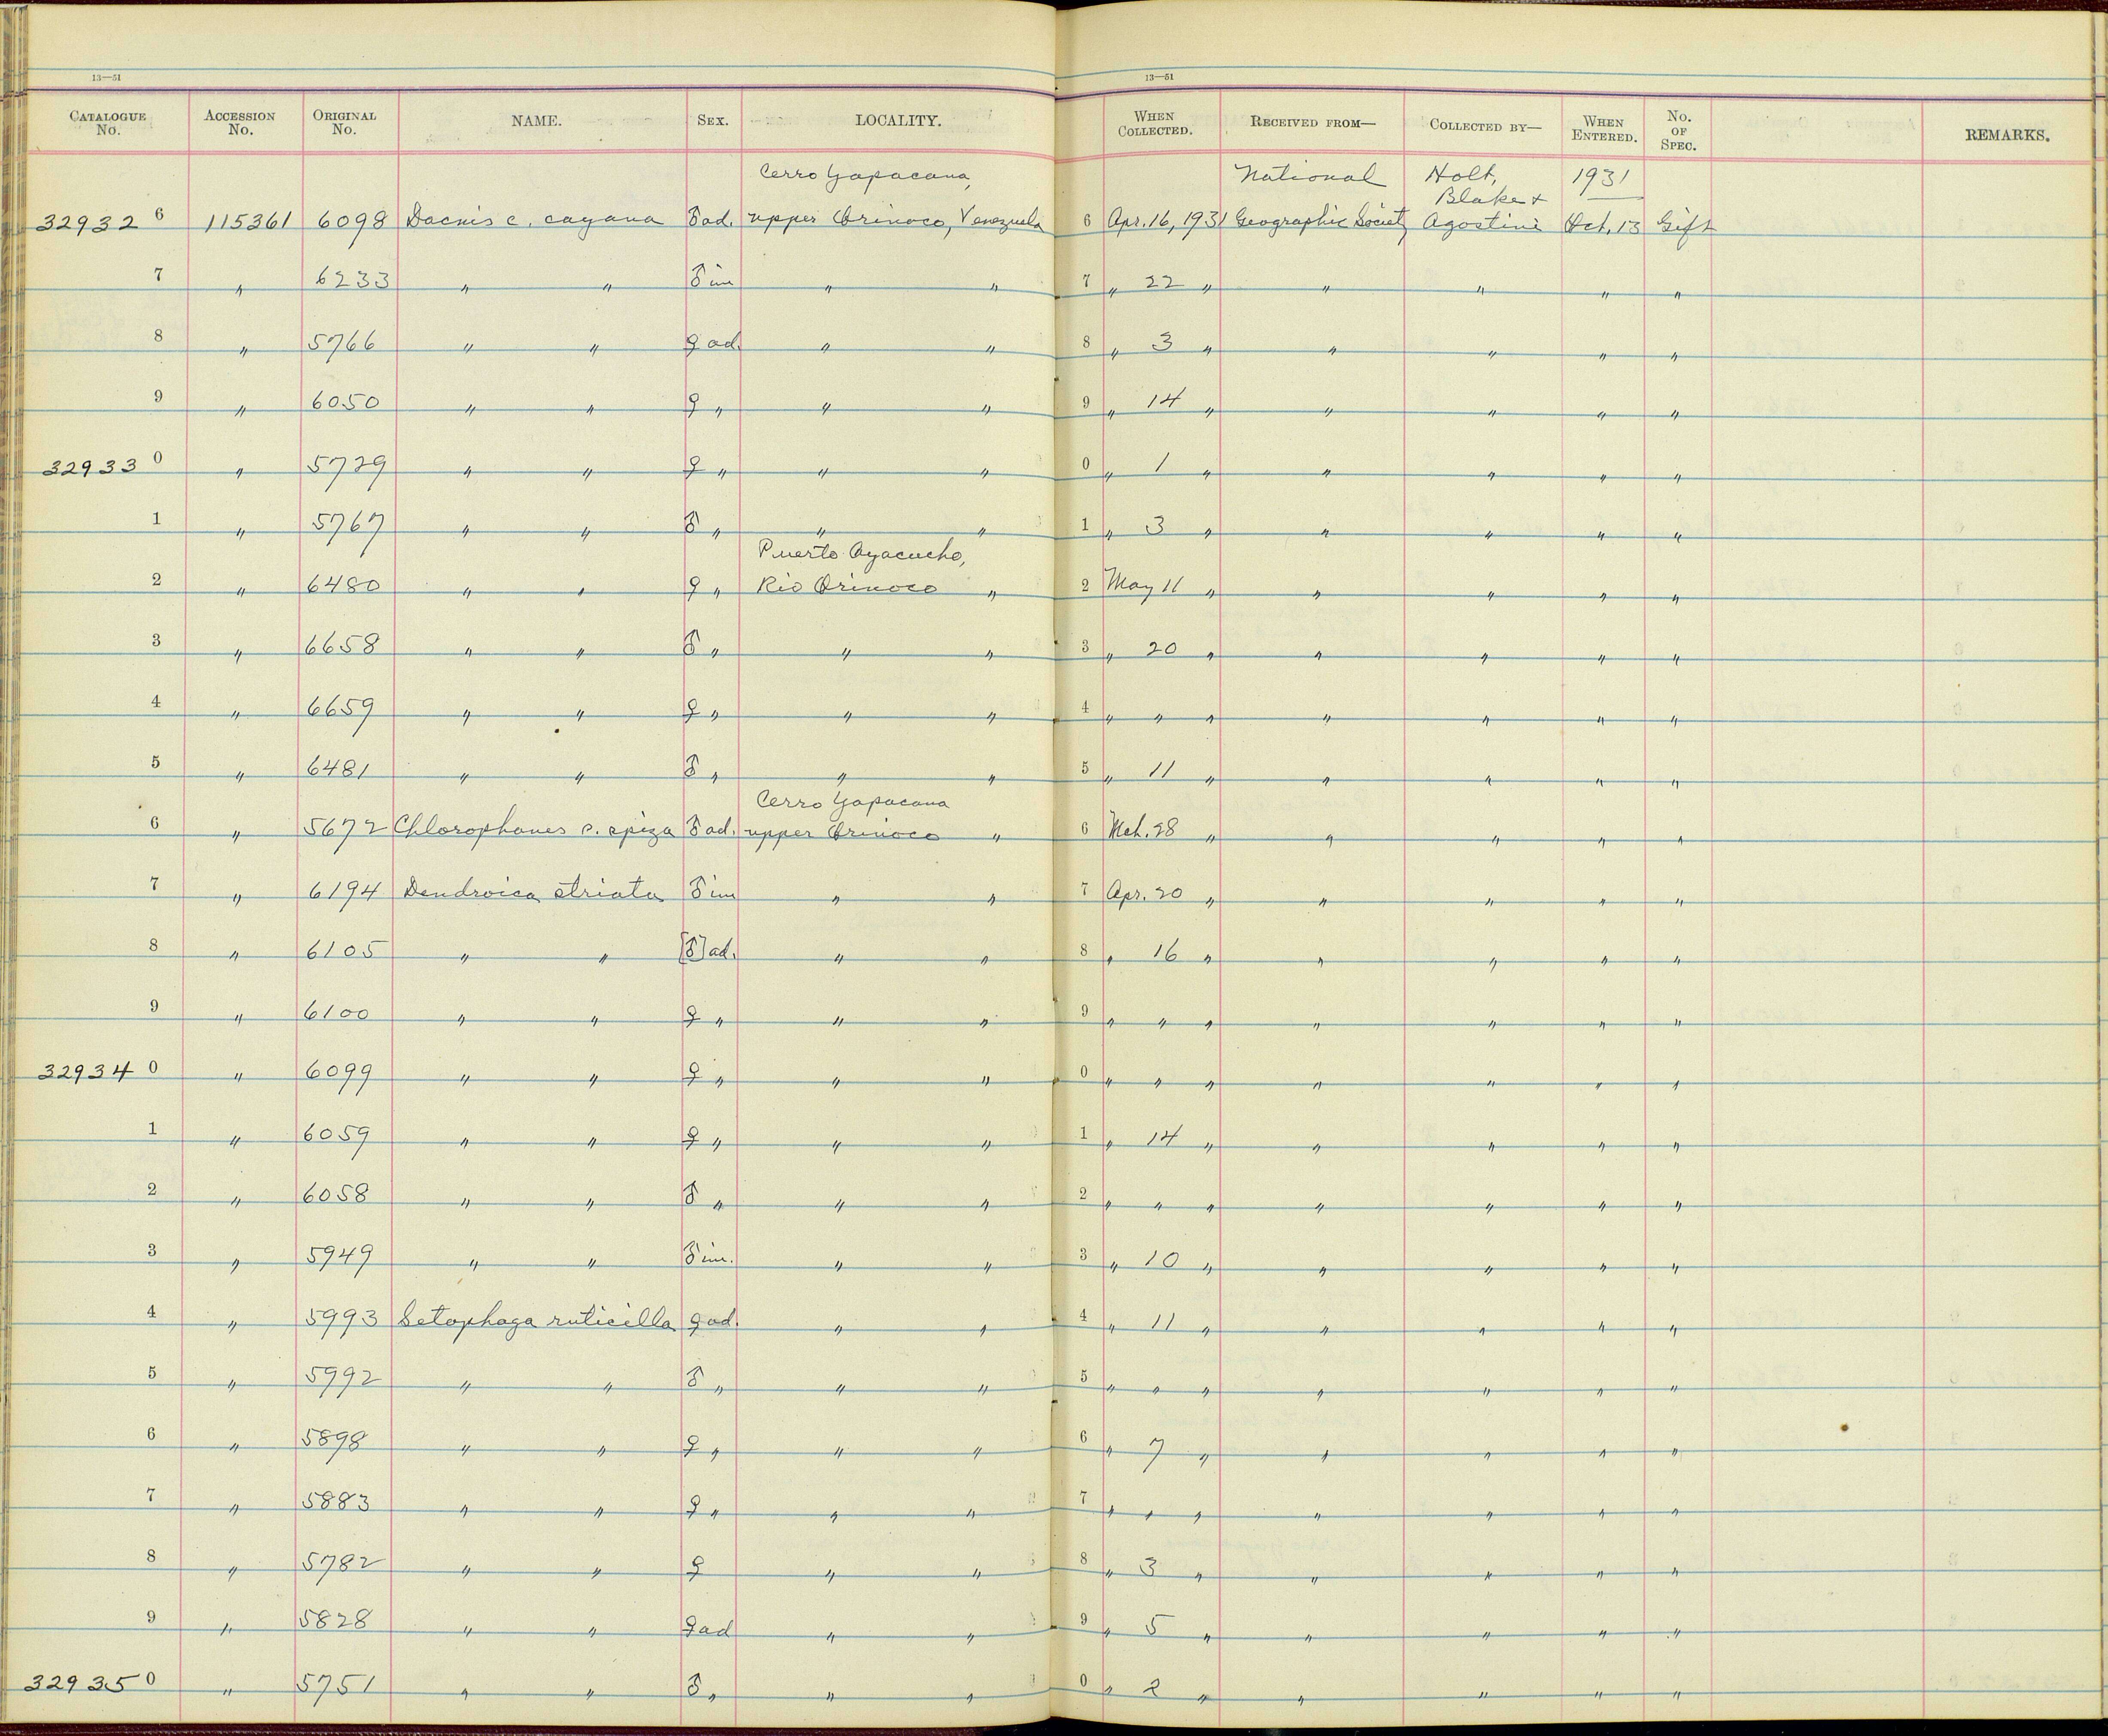 13—51 13—51
CATALOGUE No. ACCESSION No. ORIGINAL No. NAME. SEX. LOCALITY. WHEN COLLECTED. RECEIVED FROM— COLLECTED BY— WHEN ENTERED. No. OF SPEC. REMARKS.
Cerro Yapacana, National Holt, 1931
Blake +
32932 6 115361 6098 Dacnis c. cayana ♂ ad. upper Orinoco, Venezuela 6 Apr. 16, 1931 Geographic Society Agostini Oct. 13 Gift
7 " 6233 " " ♂ im " " 7 " 22 " " " " "
8 " 5766 " " ♀ ad. " " 8 " 3 " " " " "
9 " 6050 " " ♀ " " " 9 " 14 " " " " "
32933 0 " 5729 " " ♀ " " " 0 " 1 " " " " "
1 " 5767 " " ♂ " " " 1 " 3 " " " " "
Puerto Ayacucho,
2 " 6480 " " ♀ " Rio Orinoco " 2 May 11 " " " " "
3 " 6658 " " ♂ " " " 3 " 20 " " " " "
4 " 6659 " " ♀ " " " 4 " " " " " " "
5 " 6481 " " ♂ " " " 5 " 11 " " " " "
Cerro Yapacana
6 " 5672 Chlorophanes s. spiza ♂ ad. upper Orinoco " 6 Mch. 28 " " " " "
7 " 6194 Dendroica striata ♂ im " " 7 Apr. 20 " " " " "
8 " 6105 " " [♂] ad. " " 8 " 16 " " " " "
9 " 6100 " " ♀ " " " 9 " " " " " " "
32934 0 " 6099 " " ♀ " " " 0 " " " " " " "
1 " 6059 " " ♀ " " " 1 " 14 " " " " "
2 " 6058 " " ♂ " " " 2 " " " " " " "
3 " 5949 " " ♂ im. " " 3 " 10 " " " " "
4 " 5993 Setophaga ruticilla ♀ ad. " " 4 " 11 " " " " "
5 " 5992 " " ♂ " " " 5 " " " " " " "
6 " 5898 " " ♀ " " " 6 " 7 " " " " "
7 " 5883 " " ♀ " " " 7 " " " " " " "
8 " 5782 " " ♀ " " 8 " 3 " " " " "
9 " 5828 " " ♀ ad " " 9 " 5 " " " " "
32935 0 " 5751 " " ♂ " " " 0 " 2 " " " " "